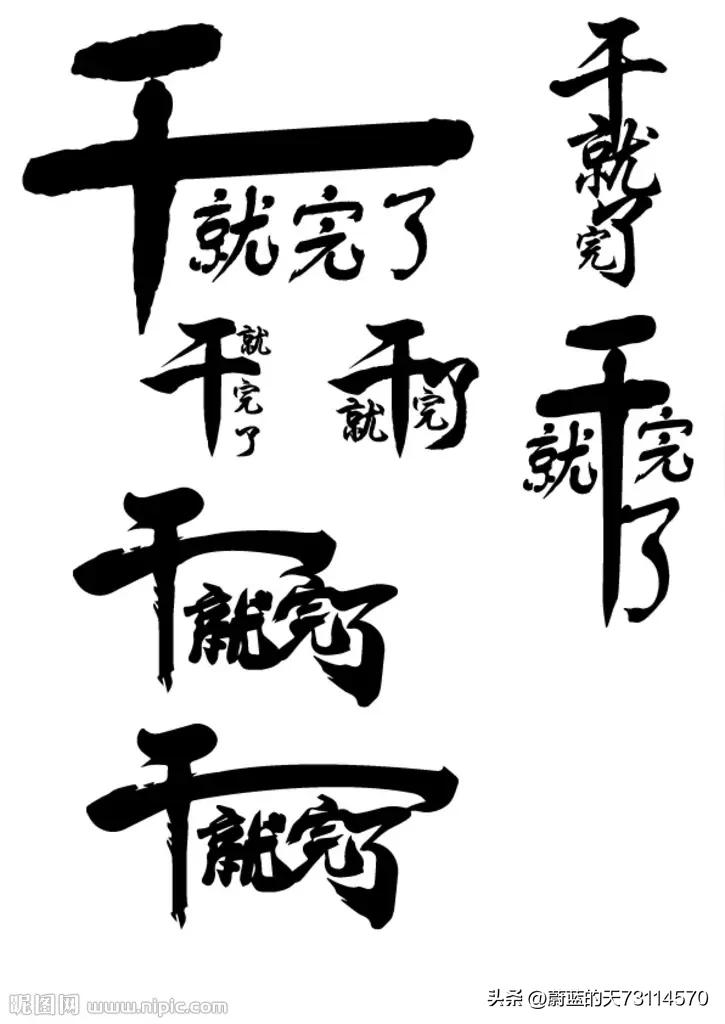 干就完了
干就完了
干就完了
干就完了
干就完了
干就完了
干就完了
昵图网 www.nipic.com
头条 @蔚蓝的天73114570